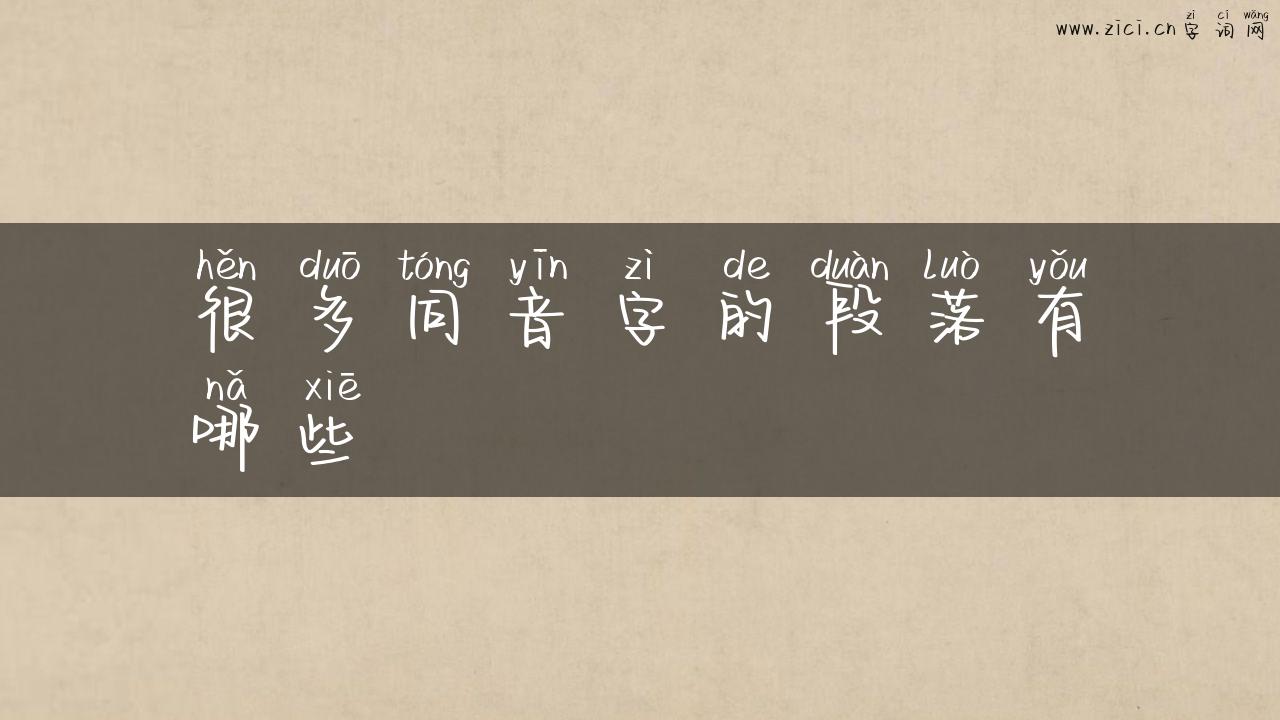 zì cí wǎng
www.zici.cn 字词网
hěn duō tóng yīn zì de duàn luò yǒu
很多同音字的段落有
nǎ xiē
哪些